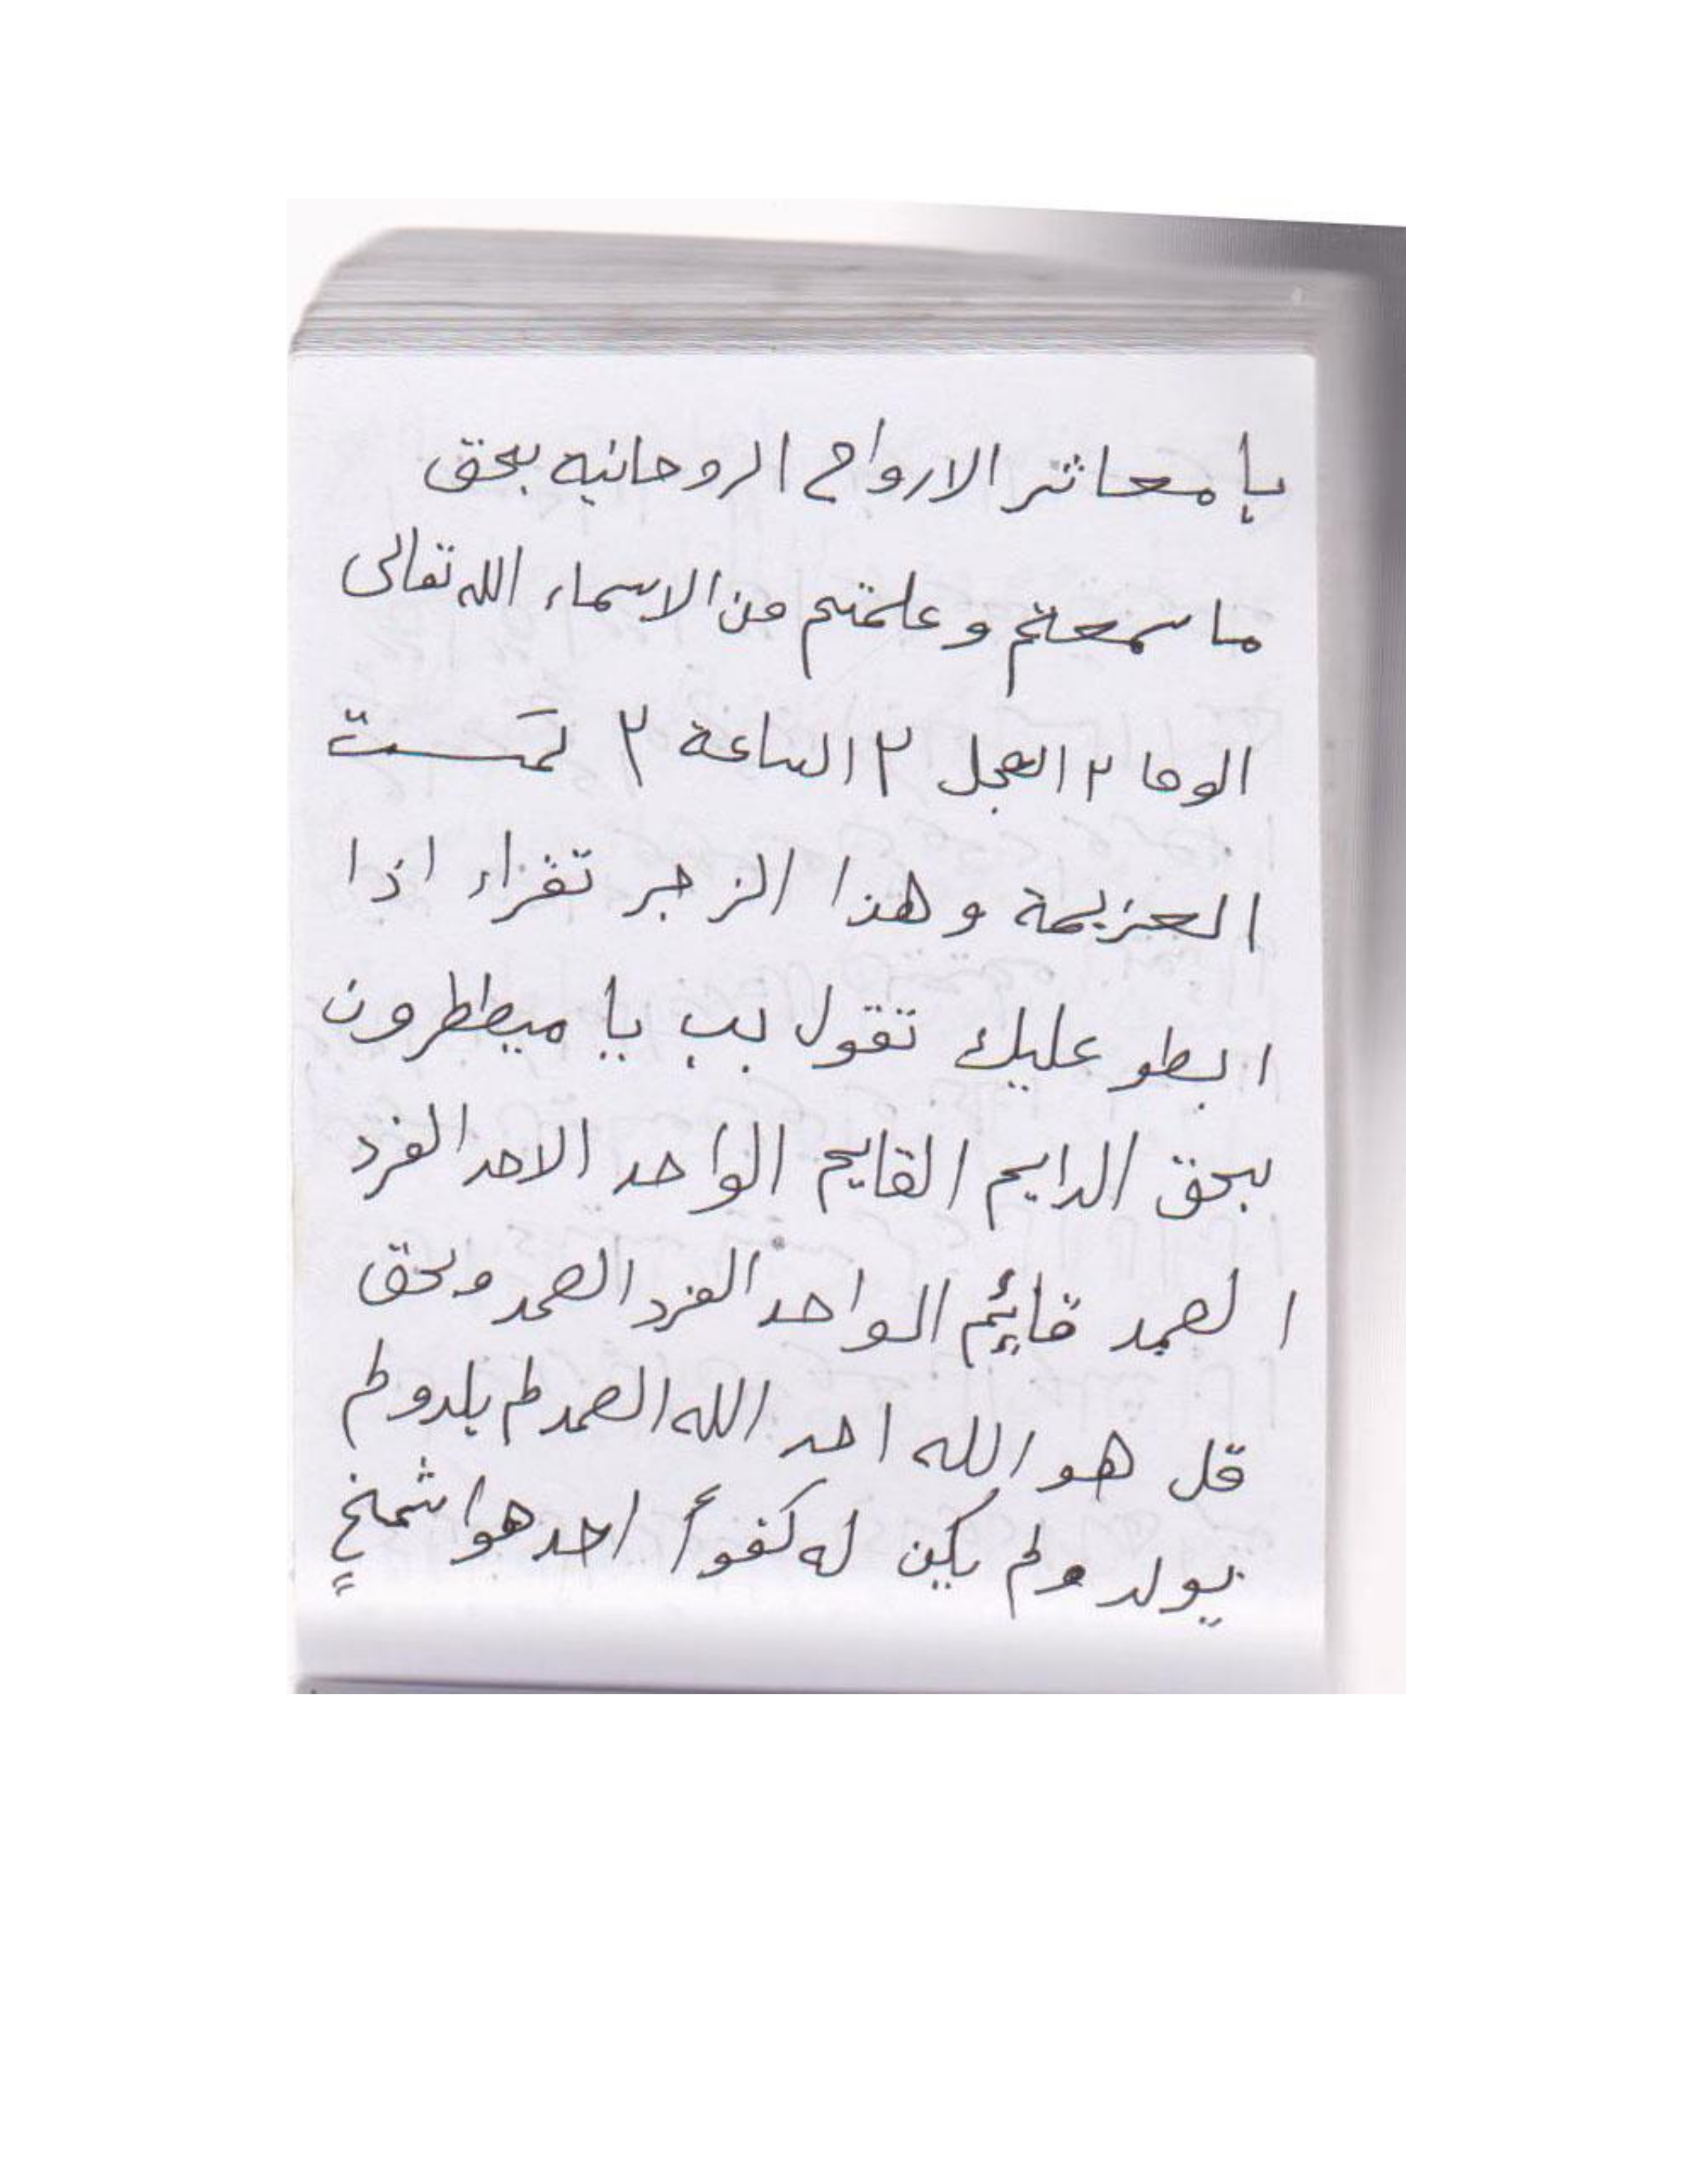 يا معاشر الارواح الروحانيه بحق
ما سمعتم وعلمتم من الاسماء الله تعالى
الوحا ٢ العجل ٢ الساعة ٢ تمـت
العزيمة وهذا الزجر تقراء اذا
ابطو عليك تقول بب يا ميططرون
بحق الدايم القايم الواحد الاحد الفرد
الصمد قائم الواحد الفرد الصمد وبحق
قل هو الله احد الله الصمد لم يلد ولم
يولد ولم يكن له كفوأ احد هوا شمخ